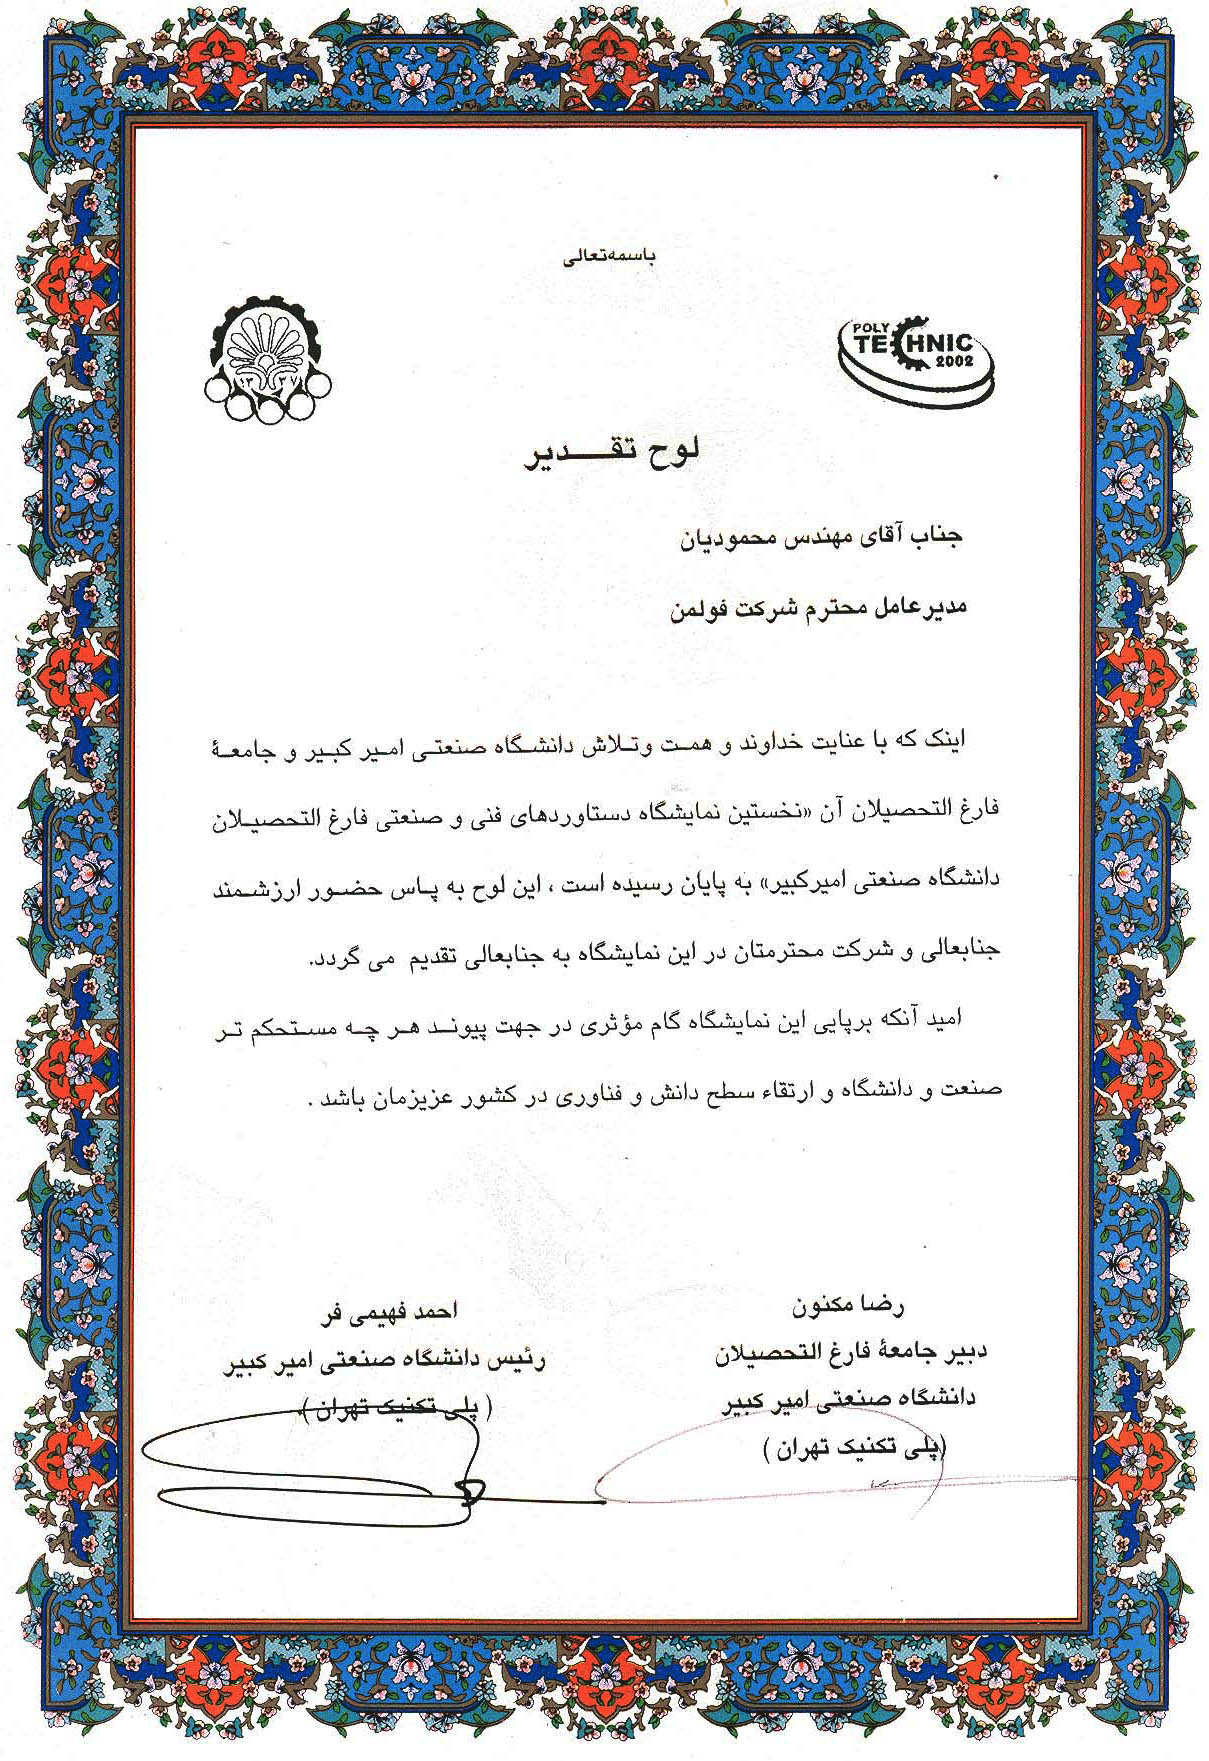 باسمه‌تعالی
POLY
TECHNIC
2002
۱۳۳۷
لوح تقدیر
جناب آقای مهندس محمودیان
مدیرعامل محترم شرکت فولمن
اینک که با عنایت خداوند و همت وتلاش دانشگاه صنعتی امیر کبیر و جامعۀ
فارغ التحصیلان آن «نخستین نمایشگاه دستاوردهای فنی و صنعتی فارغ التحصیلان
دانشگاه صنعتی امیرکبیر» به پایان رسیده است ، این لوح به پاس حضور ارزشمند
جنابعالی و شرکت محترمتان در این نمایشگاه به جنابعالی تقدیم می گردد.
امید آنکه برپایی این نمایشگاه گام مؤثری در جهت پیوند هر چه مستحکم تر
صنعت و دانشگاه و ارتقاء سطح دانش و فناوری در کشور عزیزمان باشد .
رضا مکنون
دبیر جامعۀ فارغ التحصیلان
دانشگاه صنعتی امیر کبیر
(پلی تکنیک تهران )
احمد فهیمی فر
رئیس دانشگاه صنعتی امیر کبیر
( پلی تکنیک تهران ).